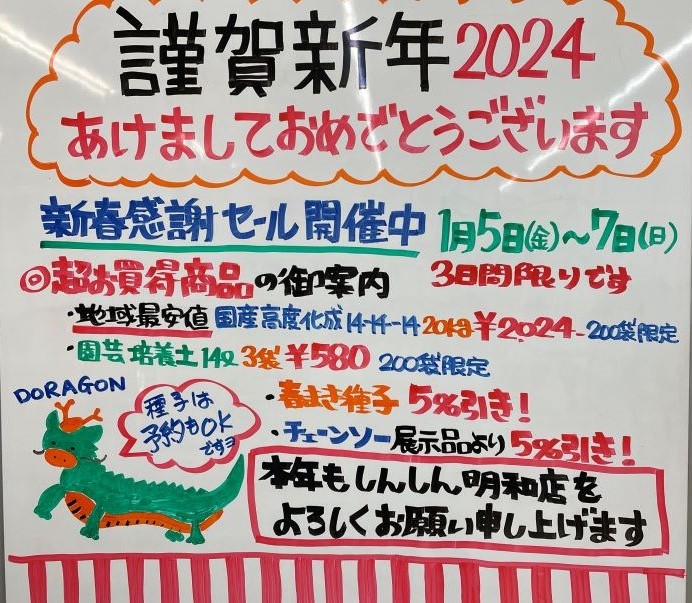 謹賀新年2024
あけましておめでとうございます
新春感謝セール開催中 1月5日(金)～7日(日)
◎超お買得商品の御案内 3日間限りです
・地域最安値 国産高度化成14-14-14 20kg ¥2,024- 200袋限定
・園芸培養土14ℓ 3袋¥580 200袋限定
DORAGON
種子は
予約もOK
ですヨ
・春まき種子 5%引き!
・チェーンソー展示品より5%引き!
本年もしんしん明和店を
よろしくお願い申し上げます